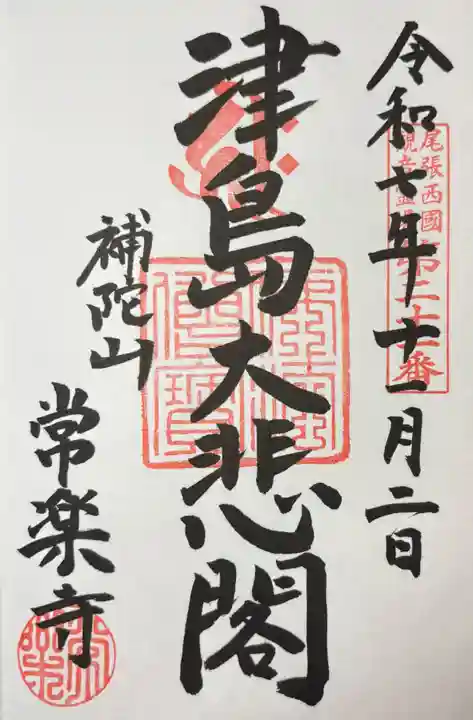 令和七年十一月二日
尾張西國
観音霊
第二十番
津島大悲閣
佛法僧寳
補陀山
常楽寺